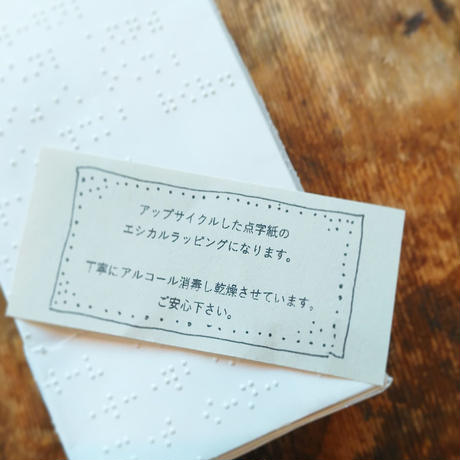 アップサイクルした点字紙の
エシカルラッピングになります。
丁寧にアルコール消毒し乾燥させています。
ご安心下さい。